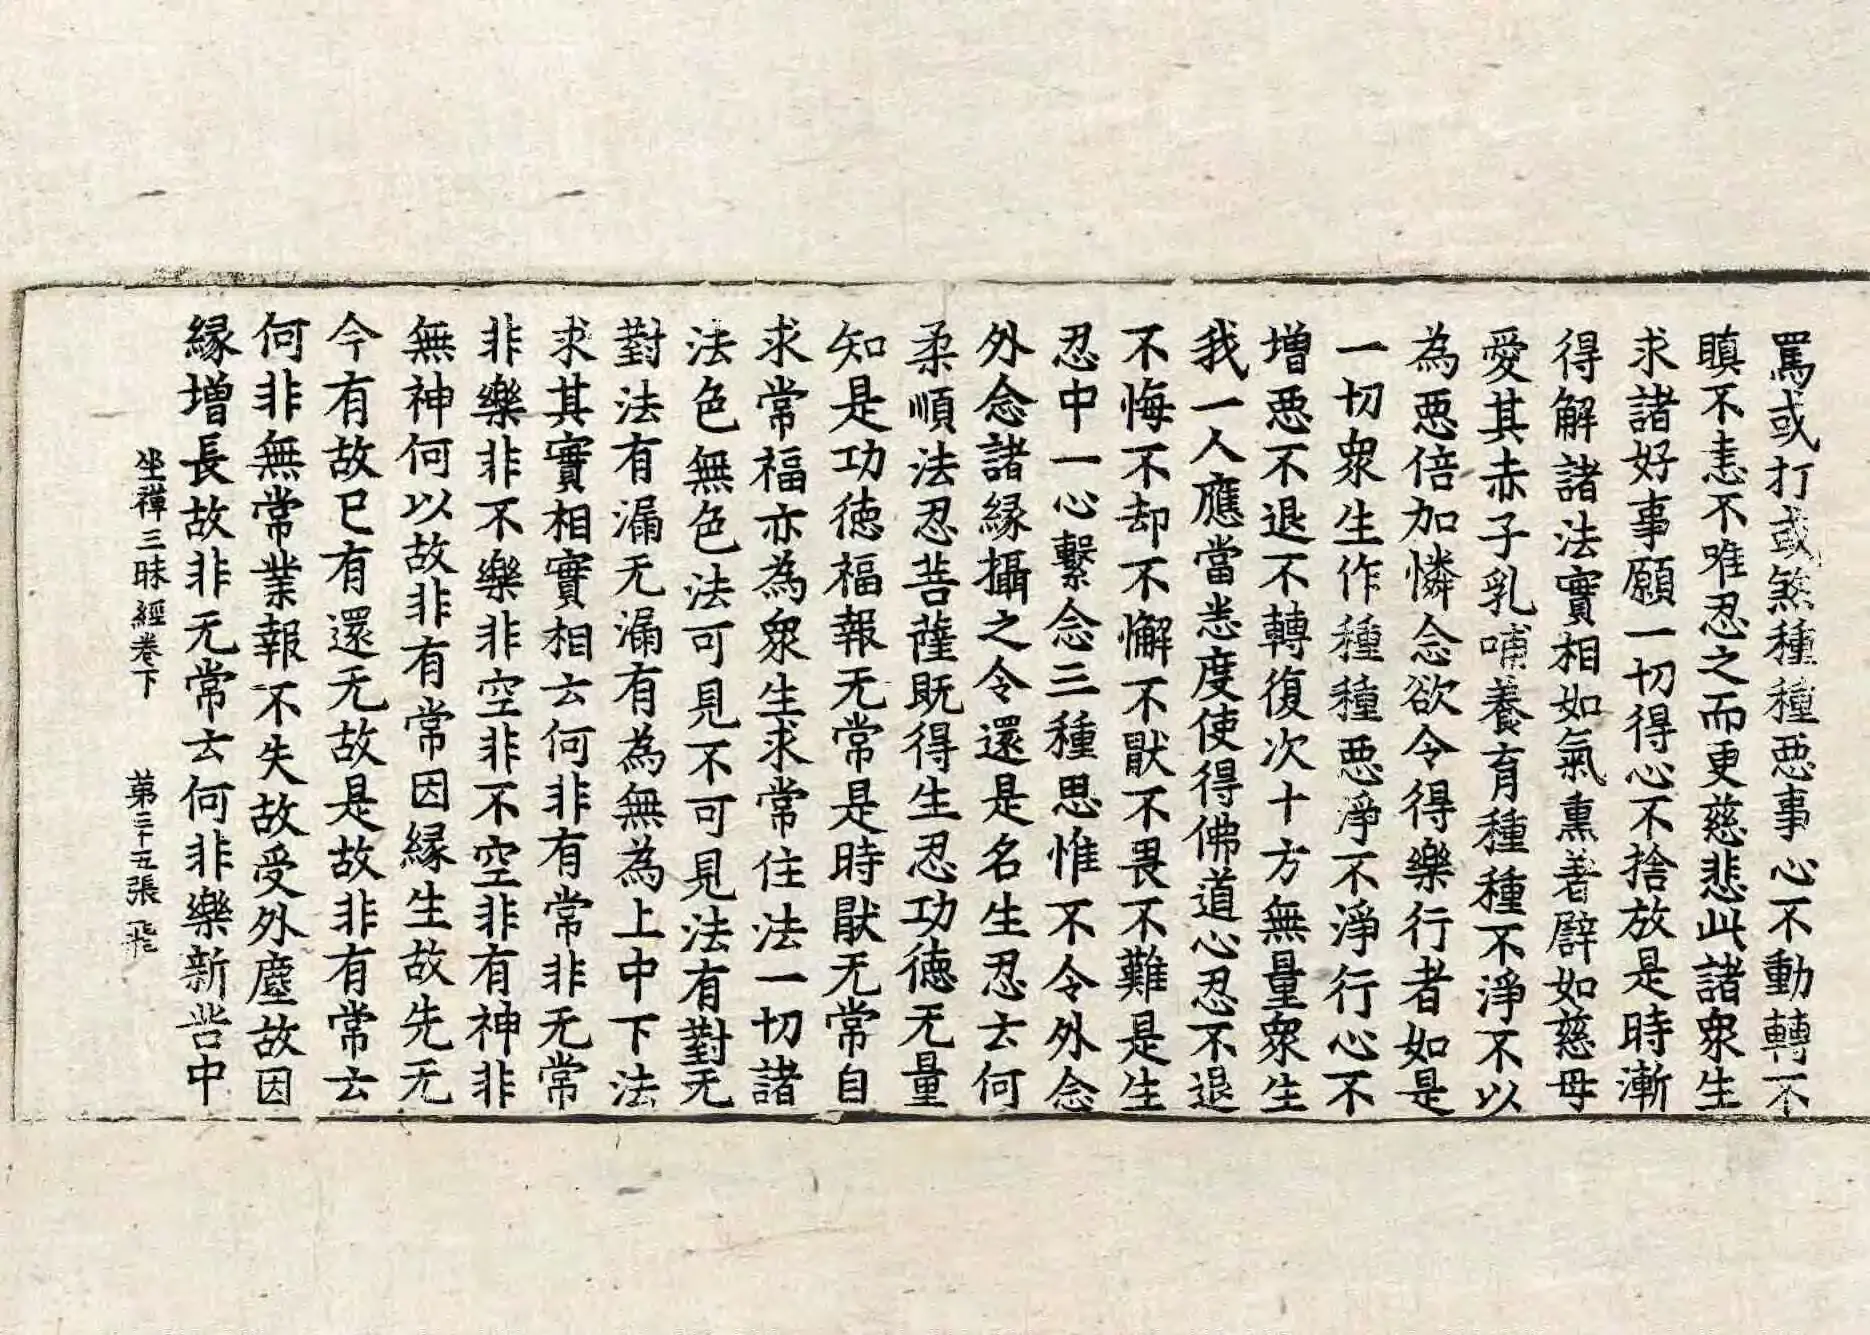 罵或打或煞種種惡事心不動轉不
瞋不恚不唯忍之而更慈悲此諸衆生
求諸好事願一切得心不捨放是時漸
得解諸法實相如氣熏著譬如慈母
愛其赤子乳哺養育種種不淨不以
為惡倍加憐念欲令得樂行者如是
一切衆生作種種惡淨不淨行心不
增惡不退不轉復次十方無量衆生
我一人應當悉度使得佛道心忍不退
不悔不却不懈不猒不畏不難是生
忍中一心繫念三種思惟不令外念
外念諸縁攝之令還是名生忍云何
柔順法忍菩薩既得生忍功徳无量
知是功徳福報无常是時猒无常自
求常福亦為衆生求常住法一切諸
法色無色法可見不可見法有對无
對法有漏无漏有為無為上中下法
求其實相實相云何非有常非无常
非樂非不樂非空非不空非有神非
無神何以故非有常因縁生故先无
今有故已有還无故是故非有常云
何非無常業報不失故受外塵故因
縁增長故非无常云何非樂新苦中
坐禪三昧經卷下 第三十五張 飛